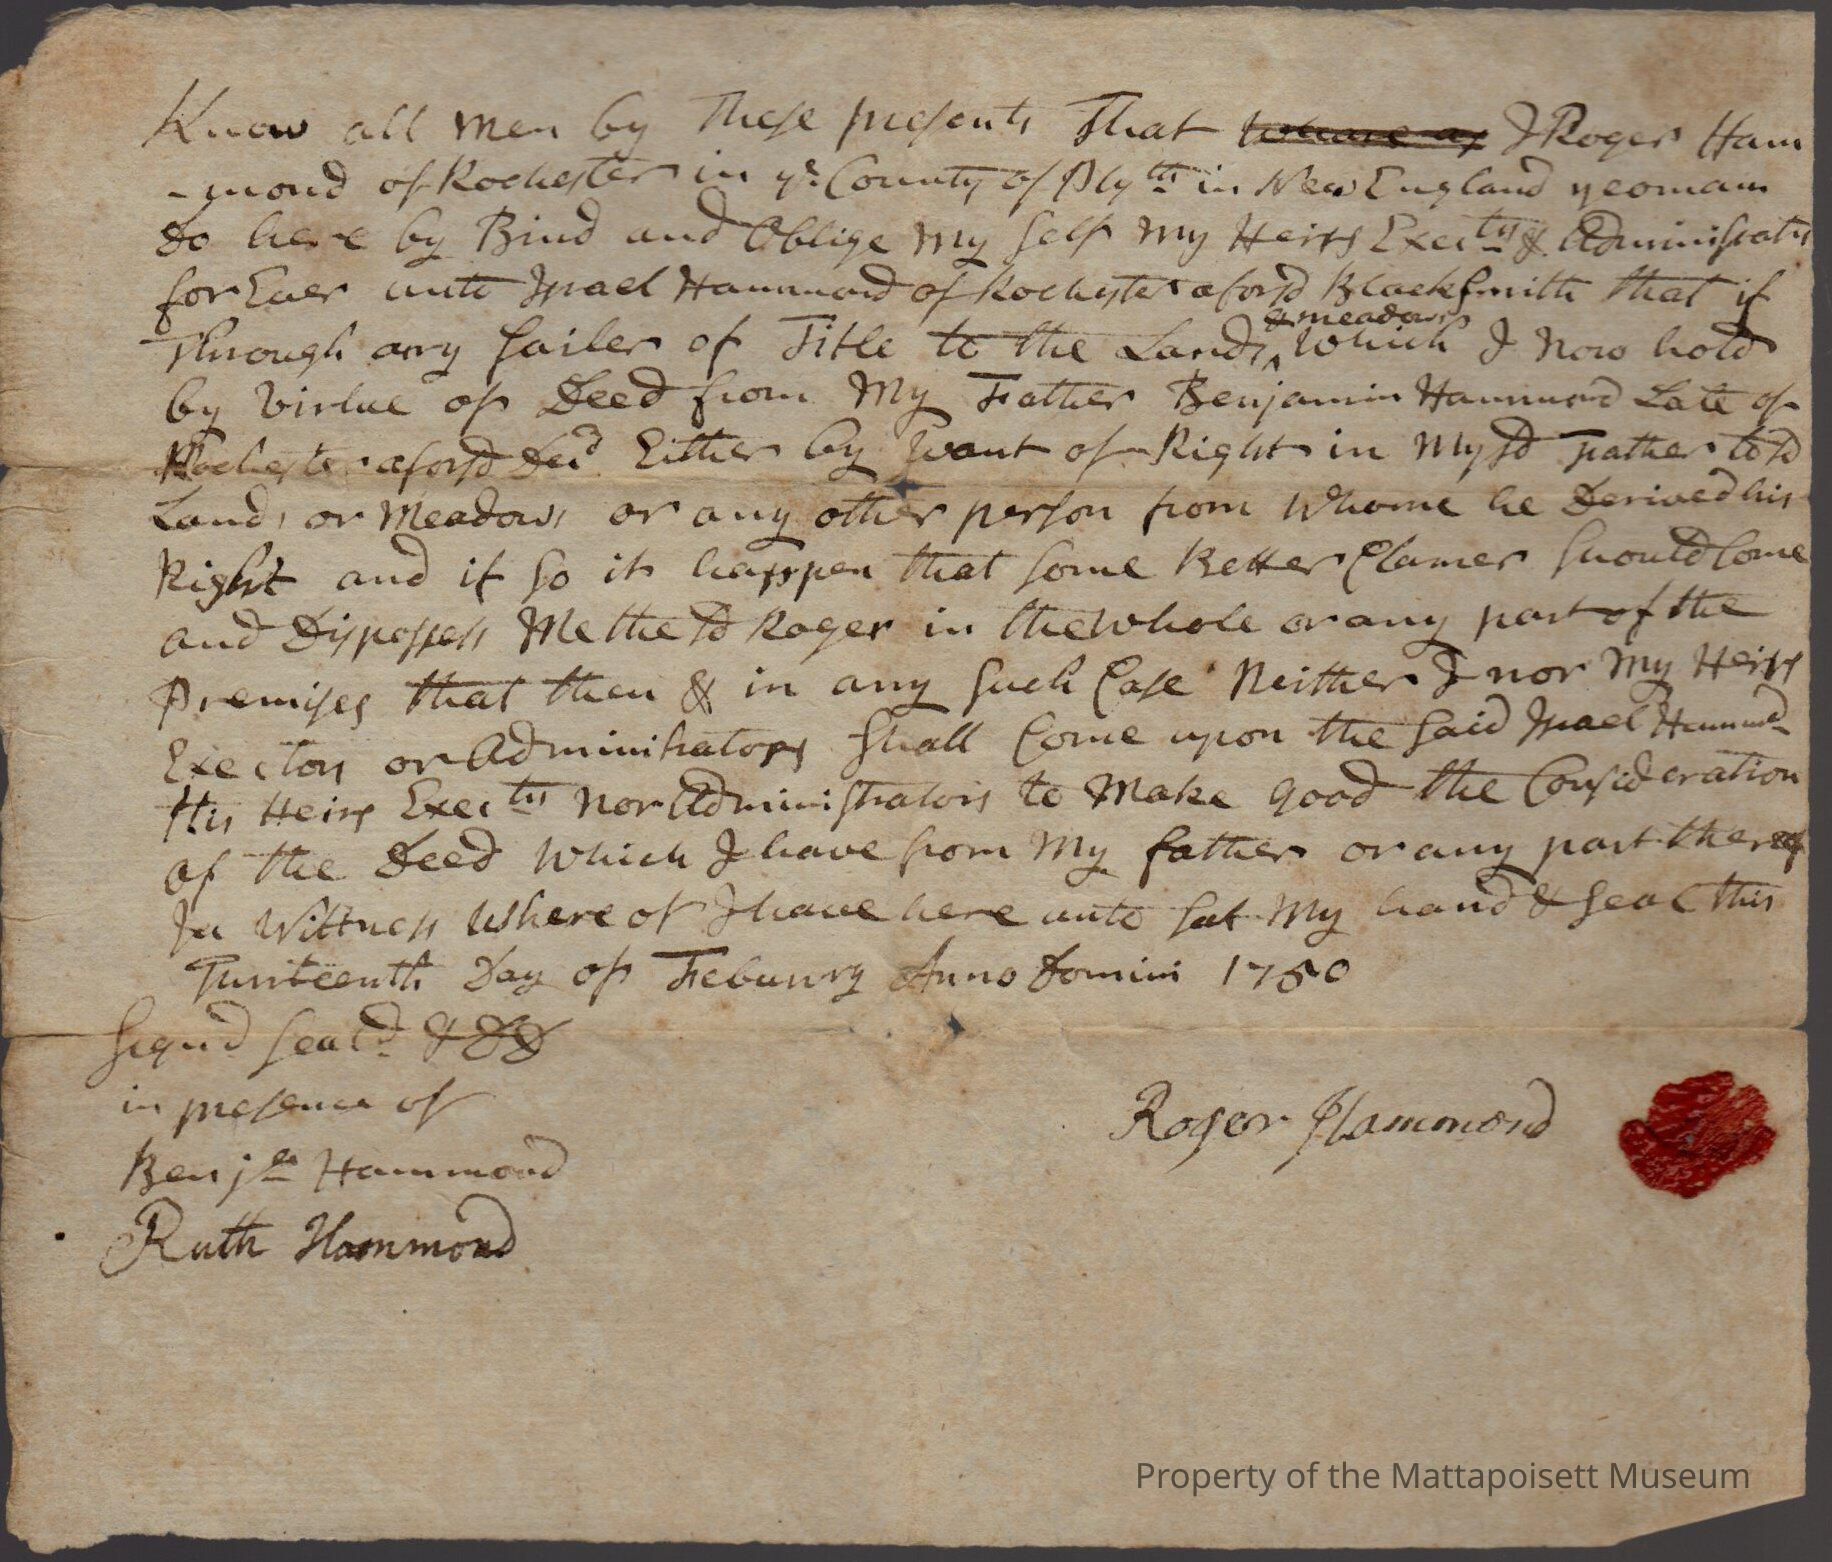 Know all men by These presents That I Roger Ham
-mond of Rochester in ye County of Plyth in New England yeoman
Do here by Bind and Oblige my self my Heirs Exectrs & Administratrs
for Ever unto Israel Hammond of Rochester aforsd Blacksmith that if
& meadows
Through any failer of Title to the Lands which I now hold
by Virtue of Deed from My Father Benjamin Hammond Late of
Rochester aforsd Decd Either by want of Right in My sd Father to sd
Lands or Meadows or any other person from Whome he Derived his
Right and if so it happen that some Better Clamer should Come
and Disposess Me the sd Roger in the whole or any part of the
Premises that then & in any such Case Neither I nor My Heirs
Exectors or Administrators shall Come upon the said Israel Hammond
His Heirs Exectrs nor Administrators to Make good the Consideration
of the Deed Which I have from My father or any part thereof
In Wittness Where of I have here unto sat My hand & seal this
Day of Febuary Anno Domini 1750
Signd seald & DD
in presence of
Roger Hammond
Benjan Hammond
Ruth Hammond
Property of the Mattapoisett Museum